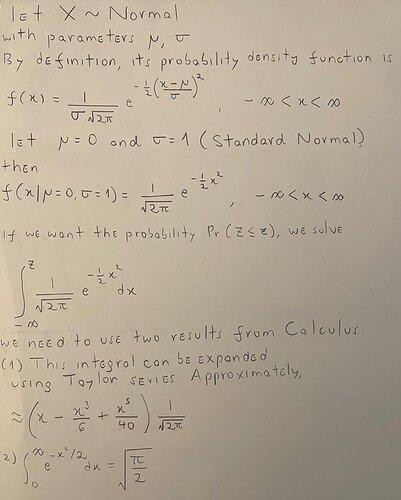 let X ~ Normal
with parameters μ, σ
By definition, its probability density function is
f(x) = 1/(σ√2π) e^(-1/2((x-μ)/σ)²), -∞ < x < ∞
let μ = 0 and σ = 1 (Standard Normal)
then
f(x|μ=0, σ=1) = 1/√2π e^(-1/2 x²), -∞ < x < ∞
If we want the probability Pr(Z ≤ z), we solve
∫_{-∞}^{z} 1/√2π e^(-1/2 x²) dx
we need to use two results from Calculus:
(1) This integral can be expanded
using Taylor series. Approximately,
≈ (x - x³/6 + x⁵/40) 1/√2π
2) ∫_0^∞ e^(-x²/2) dx = √(π/2)